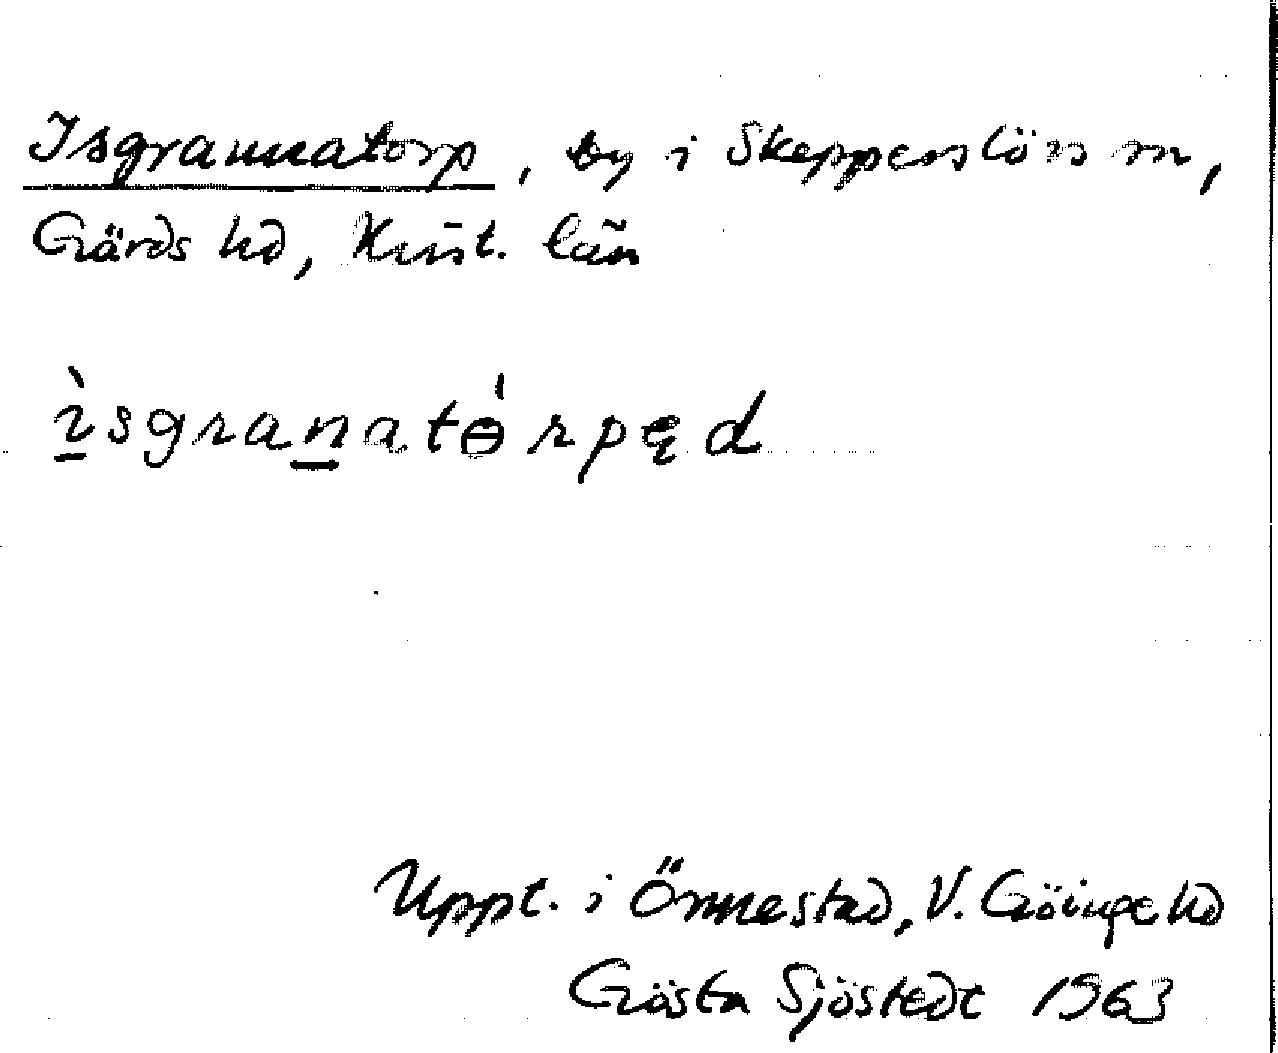 Isgrannatorp, by i Skepperslövs sn,
Gärds hd, Krist. län
ìsgranatɵ́rpęd
Uppt. i Önnestad, V. Göinge hd
Gösta Sjöstedt 1963